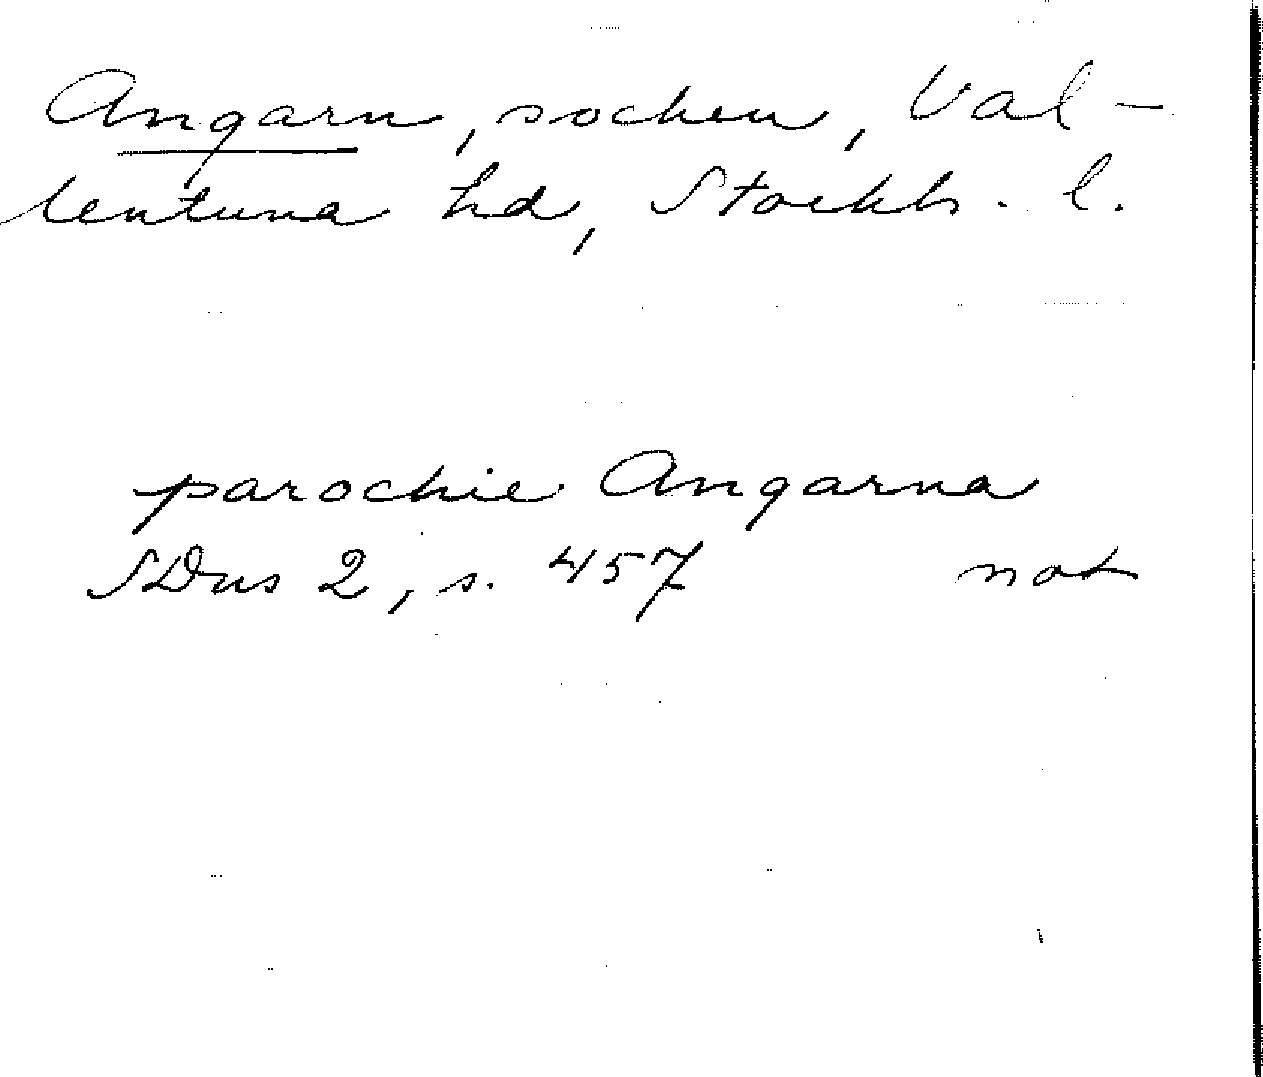 Angarn, socken, Val-
lentuna hd, Stockh. l.
parochie Angarna
SDns 2, s. 457 not